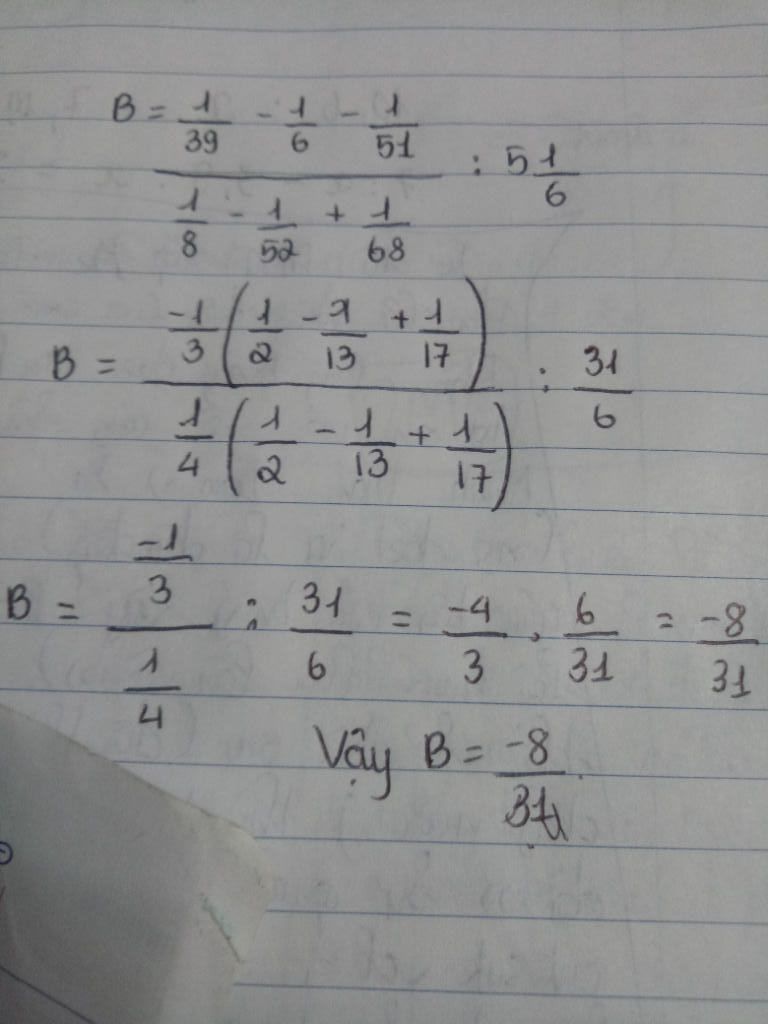 B = \frac{\frac{1}{39} - \frac{1}{6} - \frac{1}{51}}{\frac{1}{8} - \frac{1}{52} + \frac{1}{68}} : 5\frac{1}{6}
B = \frac{\frac{-1}{3}\left(\frac{1}{2} - \frac{1}{13} + \frac{1}{17}\right)}{\frac{1}{4}\left(\frac{1}{2} - \frac{1}{13} + \frac{1}{17}\right)} : \frac{31}{6}
B = \frac{\frac{-1}{3}}{\frac{1}{4}} : \frac{31}{6} = \frac{-4}{3} . \frac{6}{31} = \frac{-8}{31}
Vậy B = \frac{-8}{31}